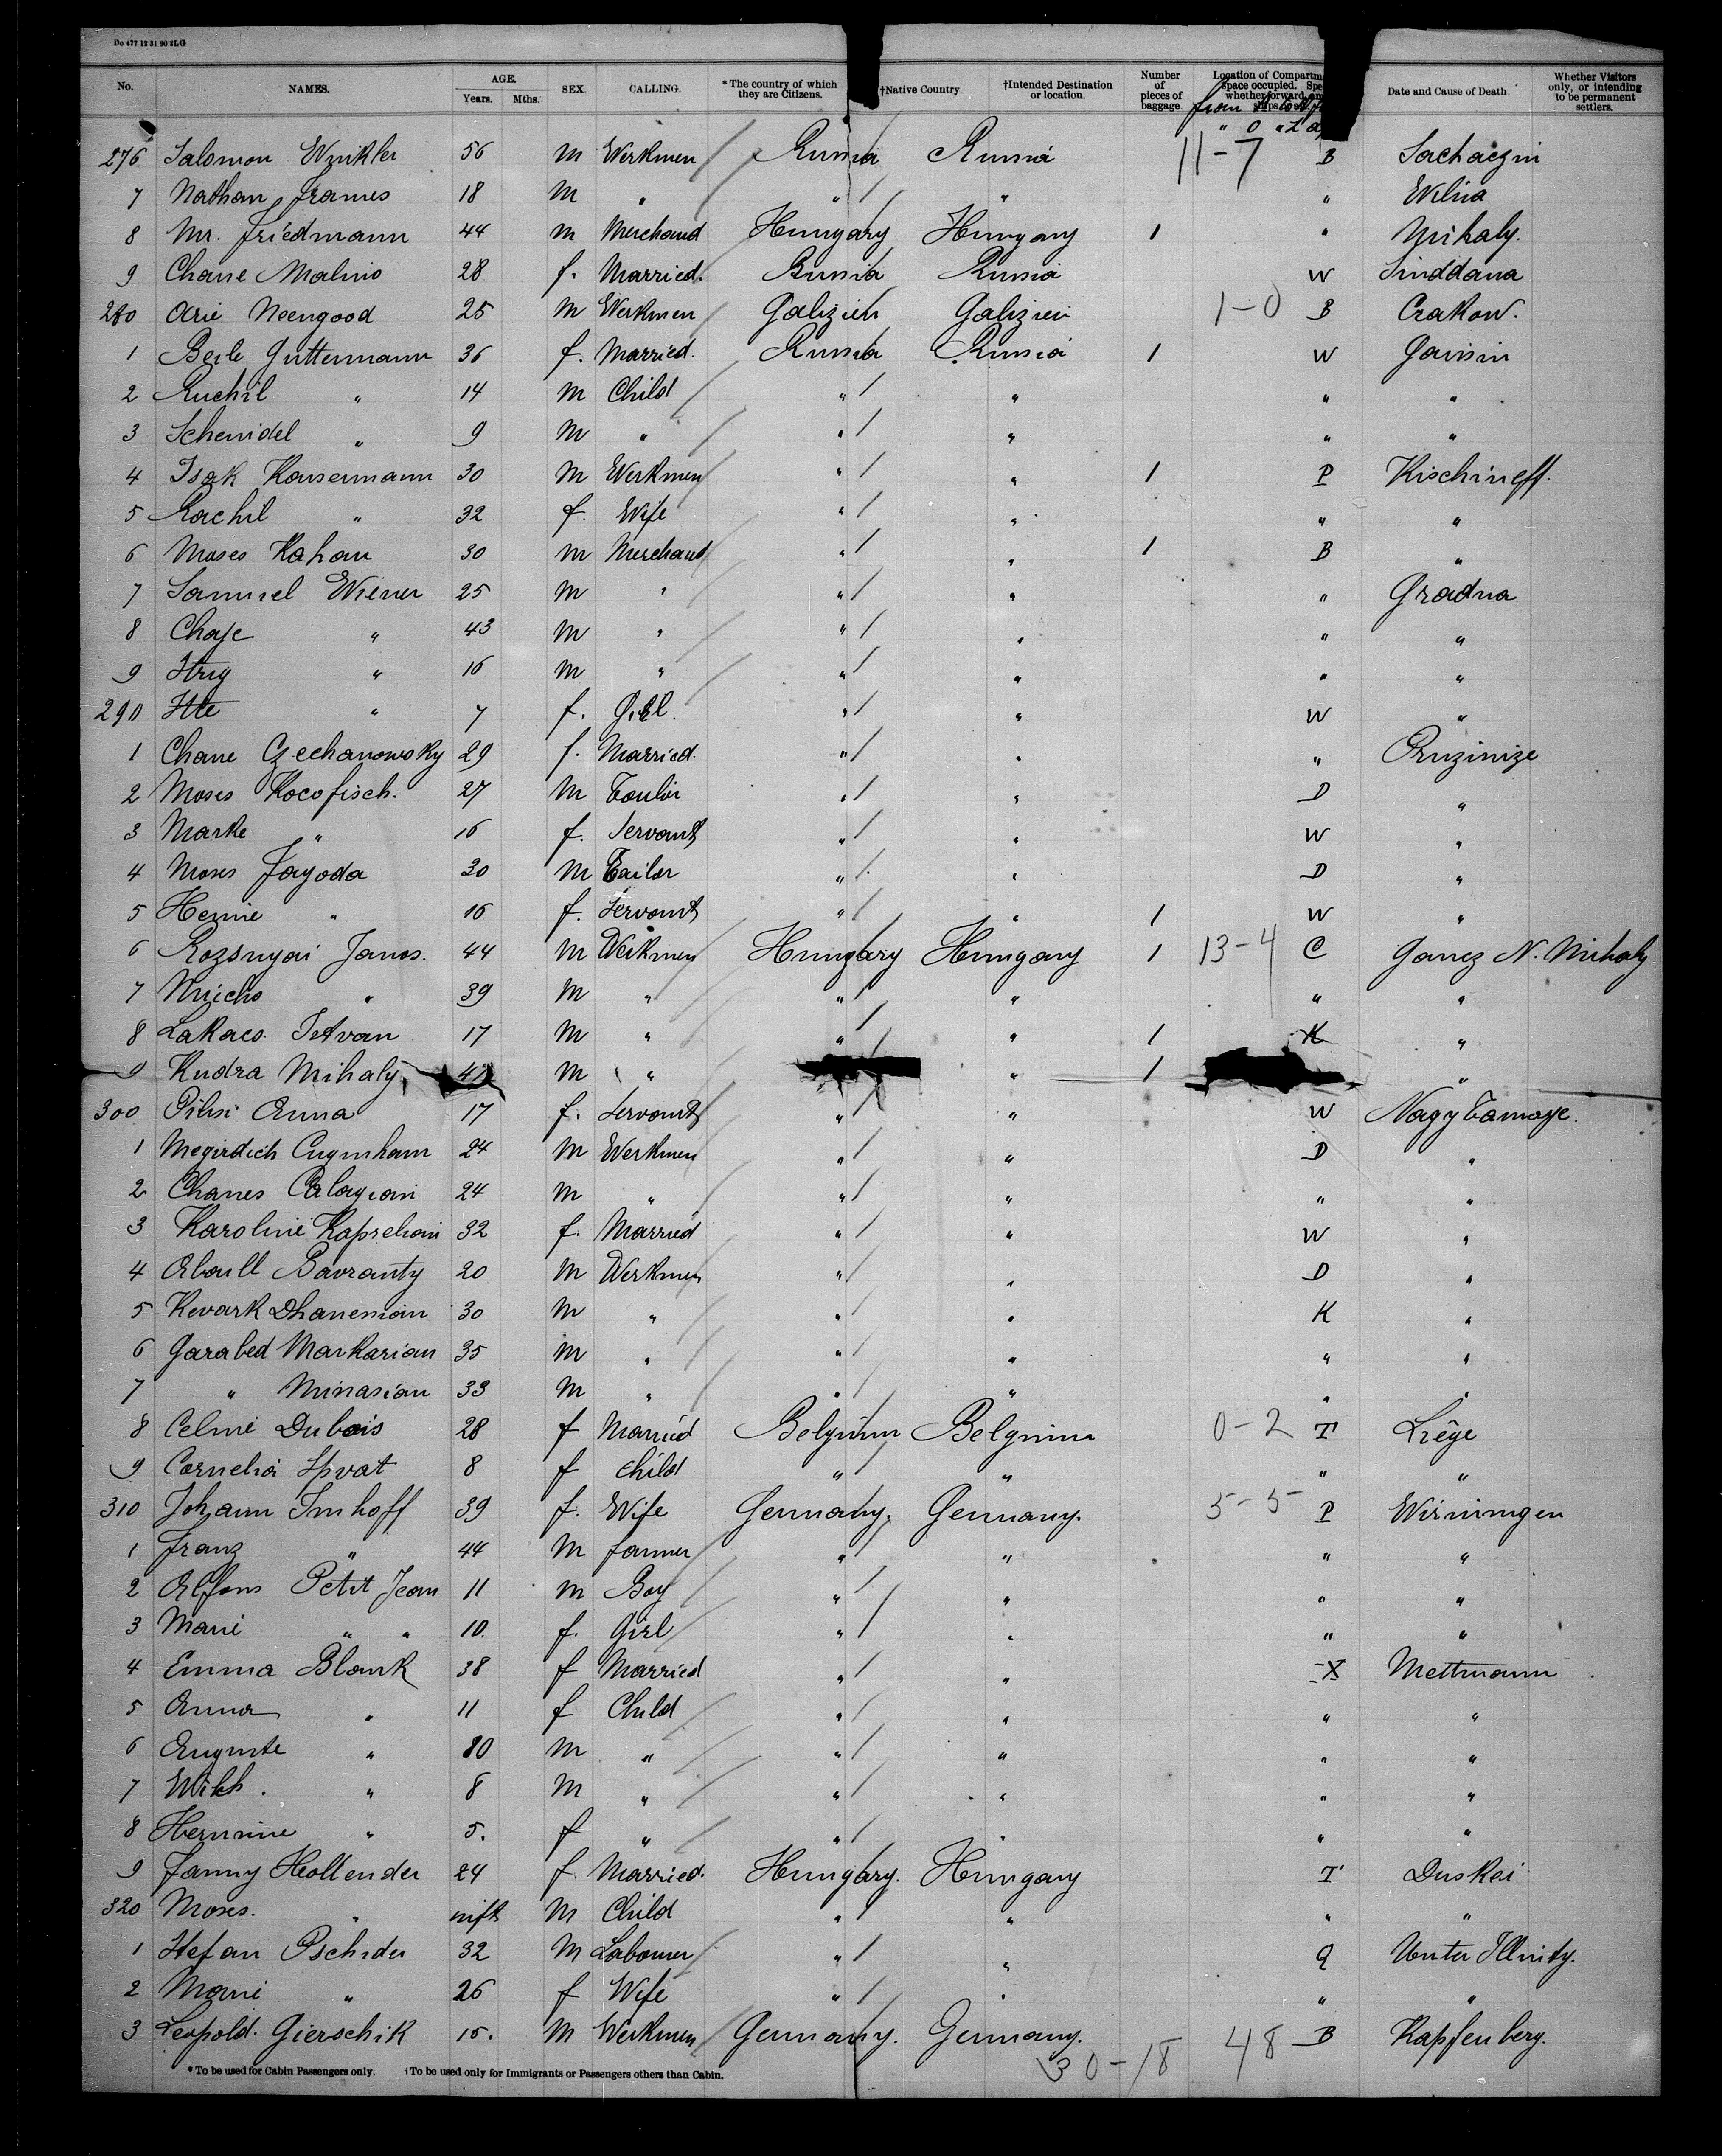 Do 477 12 31 90 2LG
No. NAMES. AGE. Years. Mths. SEX. CALLING. *The country of which they are Citizens. †Native Country †Intended Destination or location. Number of pieces of baggage Location of Compartm space occupied. Spe whether forward, am ships Date and Cause of Death. Whether Visitors only, or intending to be permanent settlers.
276 Salomon Winkler 56 m Werkmen Russia Russia 11-7 B Sachaczin
7 Nathan James 18 m " " " " Wilna
8 Mr. Friedmann 44 m Merchand Hungary Hungary 1 " Mihaly.
9 Chane Malino 28 f. Married. Russia Russia W Sinddana
280 Arie Neengood 25 m Werkmen Galizien Galizien 1-0 B Crakow.
1 Beile Guttermann 36 f. Married. Russia Russia 1 W Gaissin
2 Ruchil " 14 m Child " " " "
3 Schenidel " 9 m " " " " "
4 Isak Kansermann 30 m Werkmen " " 1 P Kischineff.
5 Rachil " 32 f. Wife " " " "
6 Moses Kahan 30 m Merchand " " 1 B "
7 Samuel Wiener 25 m " " " " Gradna
8 Chaje " 43 m " " " " "
9 Itrig " 16 m " " " " "
290 Itte " 7 f. Girl. " " W "
1 Chane Czechanowsky 29 f. Married. " " " Pruzinize
2 Moses Kocofisch. 27 m Toulor " " D "
3 Marke " 16 f. Servant " " W "
4 Moses Jagoda 30 m Tailor " " D "
5 Hennie " 16 f. Servant " " 1 W "
6 Rozsnyai Janos. 44 m Werkmen Hungary Hungary 1 13-4 C Gancz N. Mihaly
7 Micho " 39 m " " " " "
8 Lakacs Istvan 17 m " " " 1 K "
9 Kudra Mihaly 42 m " " 1 "
300 Pilisi Anna 17 f. Servant " " W Nagy Tamasje.
1 Megirdich Cuymham 24 m Werkmen " " D "
2 Chanes Calayian 24 m " " " " "
3 Karoline Kaprelian 32 f. Married " " W "
4 Abaill Bavranty 20 m Werkmen " " D "
5 Kevark Dhanesian 30 m " " " K "
6 Garabed Markarian 35 m " " " " "
7 " Minasian 33 m " " " " "
8 Celine Dubois 28 f Married Belgium Belgium 0-2 T Liêge
9 Cornelia Spvat 8 f child " " " "
310 Johann Imhoff 39 f. Wife Germany. Germany. 5-5 P Wirningen
1 Franz " 44 m farmer " " " "
2 Alfons Petit Jean 11 m Boy " " " "
3 Marie " " 10. f. Girl " " " "
4 Emma Blank 38 f Married " " X Mettmann
5 Anna " 11 f Child " " " "
6 Auguste " 80 m " " " " "
7 Wilh. " 8 m " " " " "
8 Hermine " 5. f " " " " "
9 Fanny Hollender 24 f Married. Hungary. Hungary T Duskei
320 Moses. " inft m Child " " " "
1 Stefan Pschider 32 m Labourer " " Q Unter Illnitz.
2 Marie " 26 f Wife " " " "
3 Leopold. Gierschik 15. m Werkmen Germany. Germany. 48 B Kapfenberg.
30-18
*To be used for Cabin Passengers only. †To be used only for Immigrants or Passengers others than Cabin.